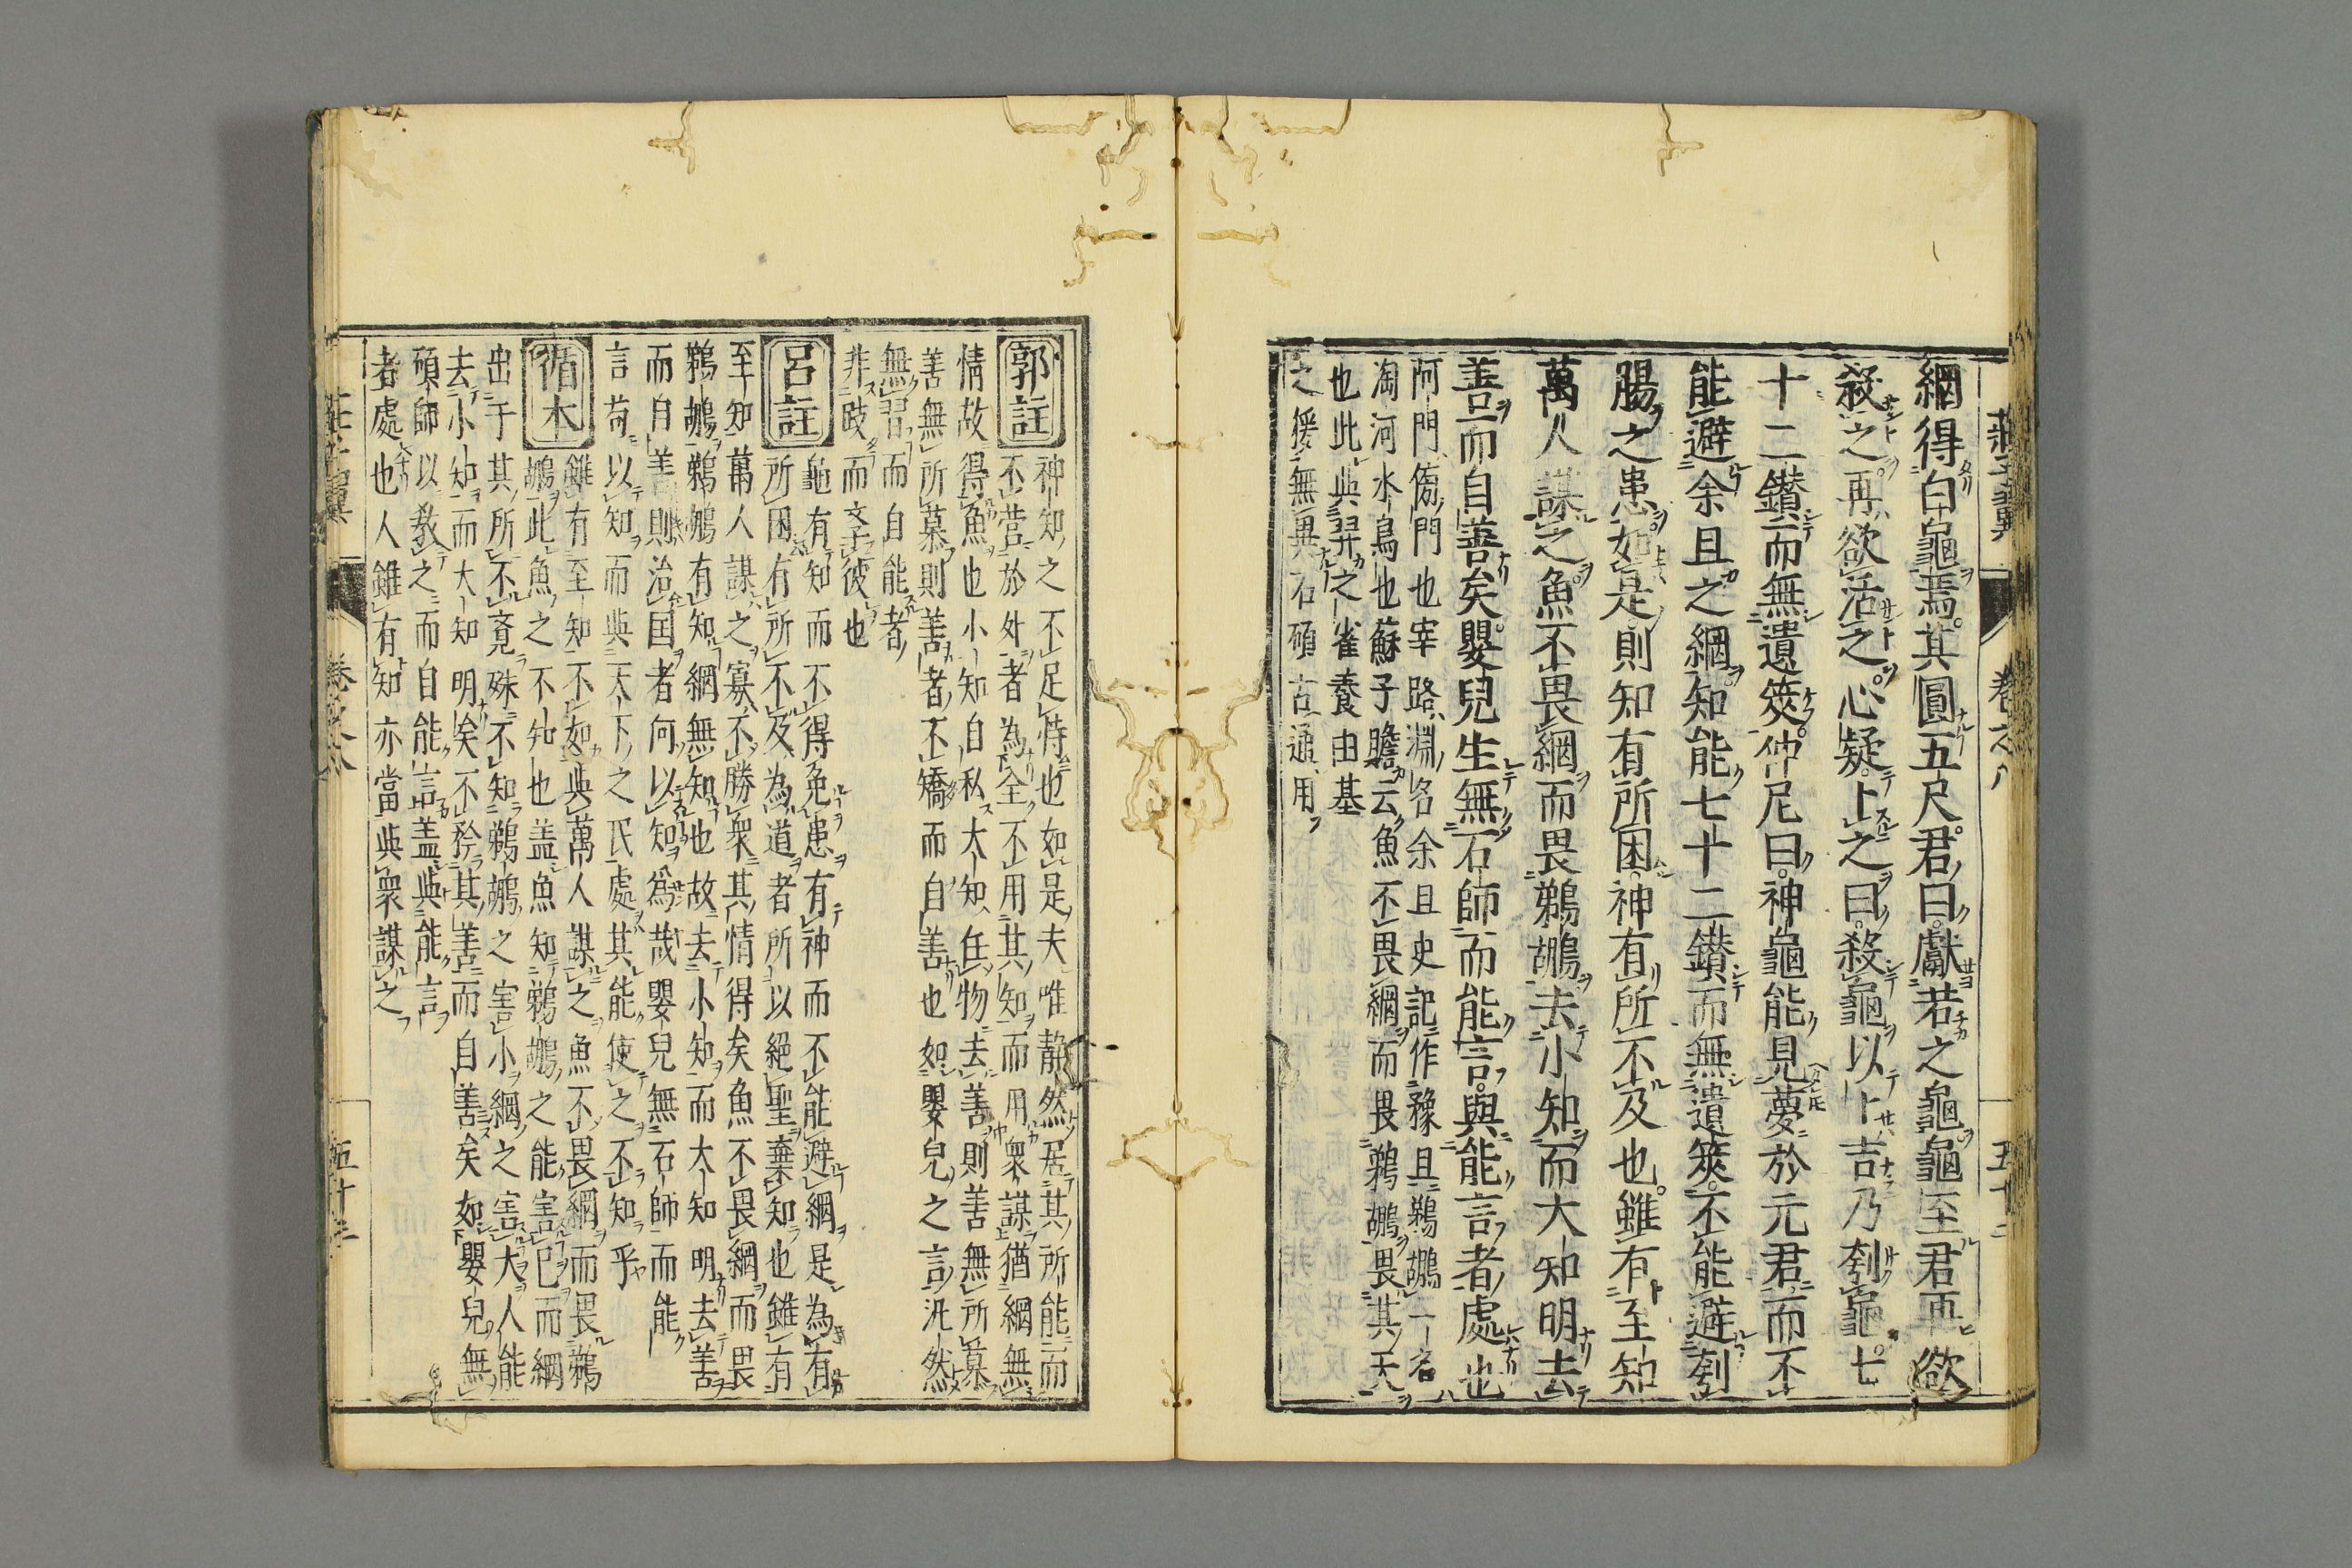 莊子翼 卷之八 五十二
網得白龜焉其圓五尺君曰獻若之龜龜至君再欲
殺之再欲活之心疑卜之曰殺龜以卜吉乃刳龜七
十二鑽而無遺筴仲尼曰神龜能見夢於元君而不
能避余且之網知能七十二鑽而無遺筴不能避刳
腸之患如是則知有所困神有所不及也雖有至知
萬人謀之魚不畏網而畏鵜鶘去小知而大知明去
善而自善矣嬰兒生無石師而能言與能言者處也
阿門傍門也宰路淵名余且史記作豫且鵜鶘一名
淘河水鳥也蘇子瞻云魚不畏網而畏鵜鶘畏其天
也此與羿之雀養由基
之猨無異石碩古通用
郭註 神知之不足恃也如是夫唯靜然居其所能而
不营於外者為全不用其知而用衆謀猶網無
情故得魚也小知自私大知任物去善則善無所慕
善無所慕則善者不矯而自善也如嬰兒之言汎然
無習而自能者
非跂而文彼也
呂註 龜有知而不得免患有神而不能避網是為有
所困有所不及為道者所以絕聖棄知也雖有
至知萬人謀之寡不勝衆其情得矣魚不畏網而畏
鵜鶘鵜鶘有知網無知也故去小知而大知明去善
而自善則治国者何以知爲哉嬰兒無石師而能
言苟以知而與天下之民處其能使之不知乎
循本 雖有至知不如與萬人謀之魚不畏網而畏鵜
鶘此魚之不知也盖魚知鵜鶘之能害已而網
出于其所不意殊不知鵜鶘之害小網之害大人能
去小知而大知明矣不矜其善而自善矣如嬰兒無
碩師以教之而自能言盖與能言
者處也人雖有知亦當與衆謀之
莊子翼 卷之八 五十三